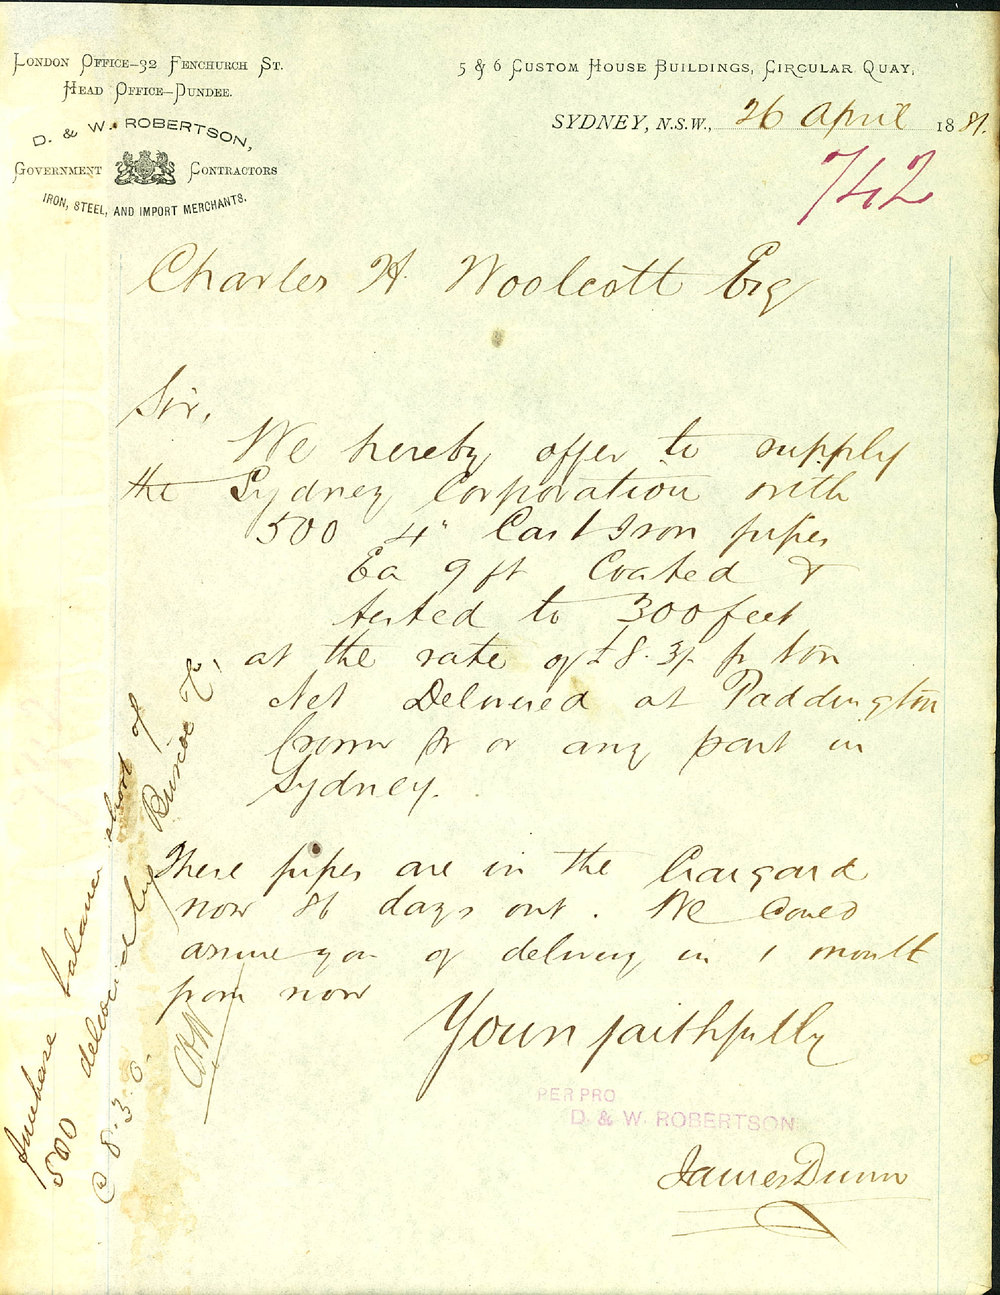 LONDON OFFICE-32 FENCHURCH ST.
HEAD OFFICE-DUNDEE.
D. & W. ROBERTSON,
GOVERNMENT CONTRACTORS
IRON, STEEL, AND IMPORT MERCHANTS.
5 & 6 CUSTOM HOUSE BUILDINGS, CIRCULAR QUAY,
SYDNEY, N.S.W., 26 April 1881.
742
Charles H. Woolcott Esq
Sir,
We hereby offer to supply
the Sydney Corporation with
500 4" Cast Iron pipes
Ea 9 ft Coated &
tested to 300 feet
at the rate of £8.3/. pr ton
Net Delivered at Paddington
or any part in
Sydney.
These pipes are in the
now 86 days out. We could
assure you of delivery in 1 month
from now
Yours faithfully
PER PRO
D. & W. ROBERTSON
James Dunn
Purchase balance short of
500 by Briscoe &c,
@ 8.3.0.